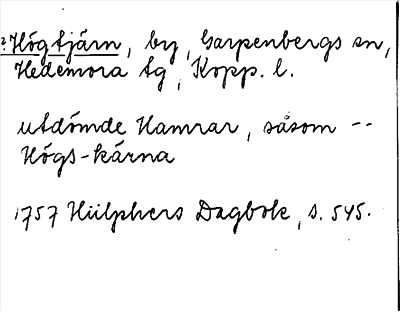 ? Högtjärn, by, Garpenbergs sn,
Hedemora tg, Kopp. l.
utdömde Hamrar, såsom --
Högs-kärna
1757 Hülphers Dagbok, s. 545.